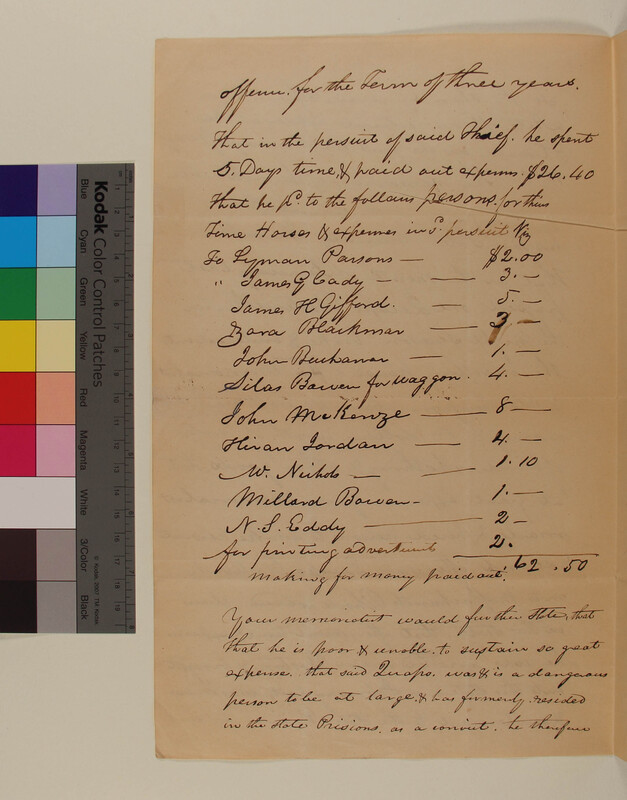 offence. for the Term of three years.
That in the persuit of said Thief. he spent
5. Days time, & paid out expenns. $26.40
That he pd. to the follow persons. for this
Time Horses & expenses in sd. persuit Viz
To Lyman Parsons — $2.00
" James G Cady — — 3. —
James H Gifford. — 5. —
Ezara Blackmar — 3 —
John Buchanan — 1. —
Silas Bowen for waggon. 4. —
John McKenze — 8 —
Hiran Jordan — 4. —
W. Nichols — — 1.10
Millard Bowen — 1. —
N. S. Eddy — 2 —
for printing advertiment 2.
making for money paid out. 62.50
Your memorialist would further State, that
that he is poor & unable. to sustain so great
expense. that said was & is a dangerous
person to be at large. & has formerly. resided
in the State Prisions. as a convict. he therefore
Kodak Color Control Patches
Blue
Cyan
Green
Yellow
Red
Magenta
White
3/Color
Black
© Kodak, 2007 TM: Kodak